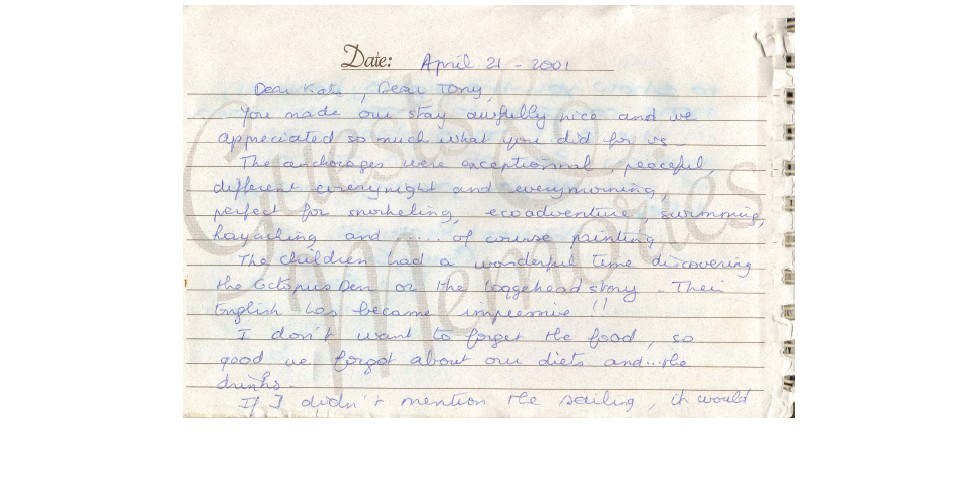 Date: April 21 - 2001
Dear Kate, Dear Tony,
You made our stay awfully nice and we
appreciated so much what you did for us.
The anchorages were exceptionnal, peaceful,
different everynight and everymorning,
perfect for snorkeling, ecoadventure, swimming,
kayacking and .... of course painting
The children had a wonderful time discovering
the Octopus Den or the loggehead story. Their
English has became impressive !!
I don't want to forget the food, so
good we forgot about our diets and...the
drinks.
If I didn't mention the sailing, it would
Guests &
Memories